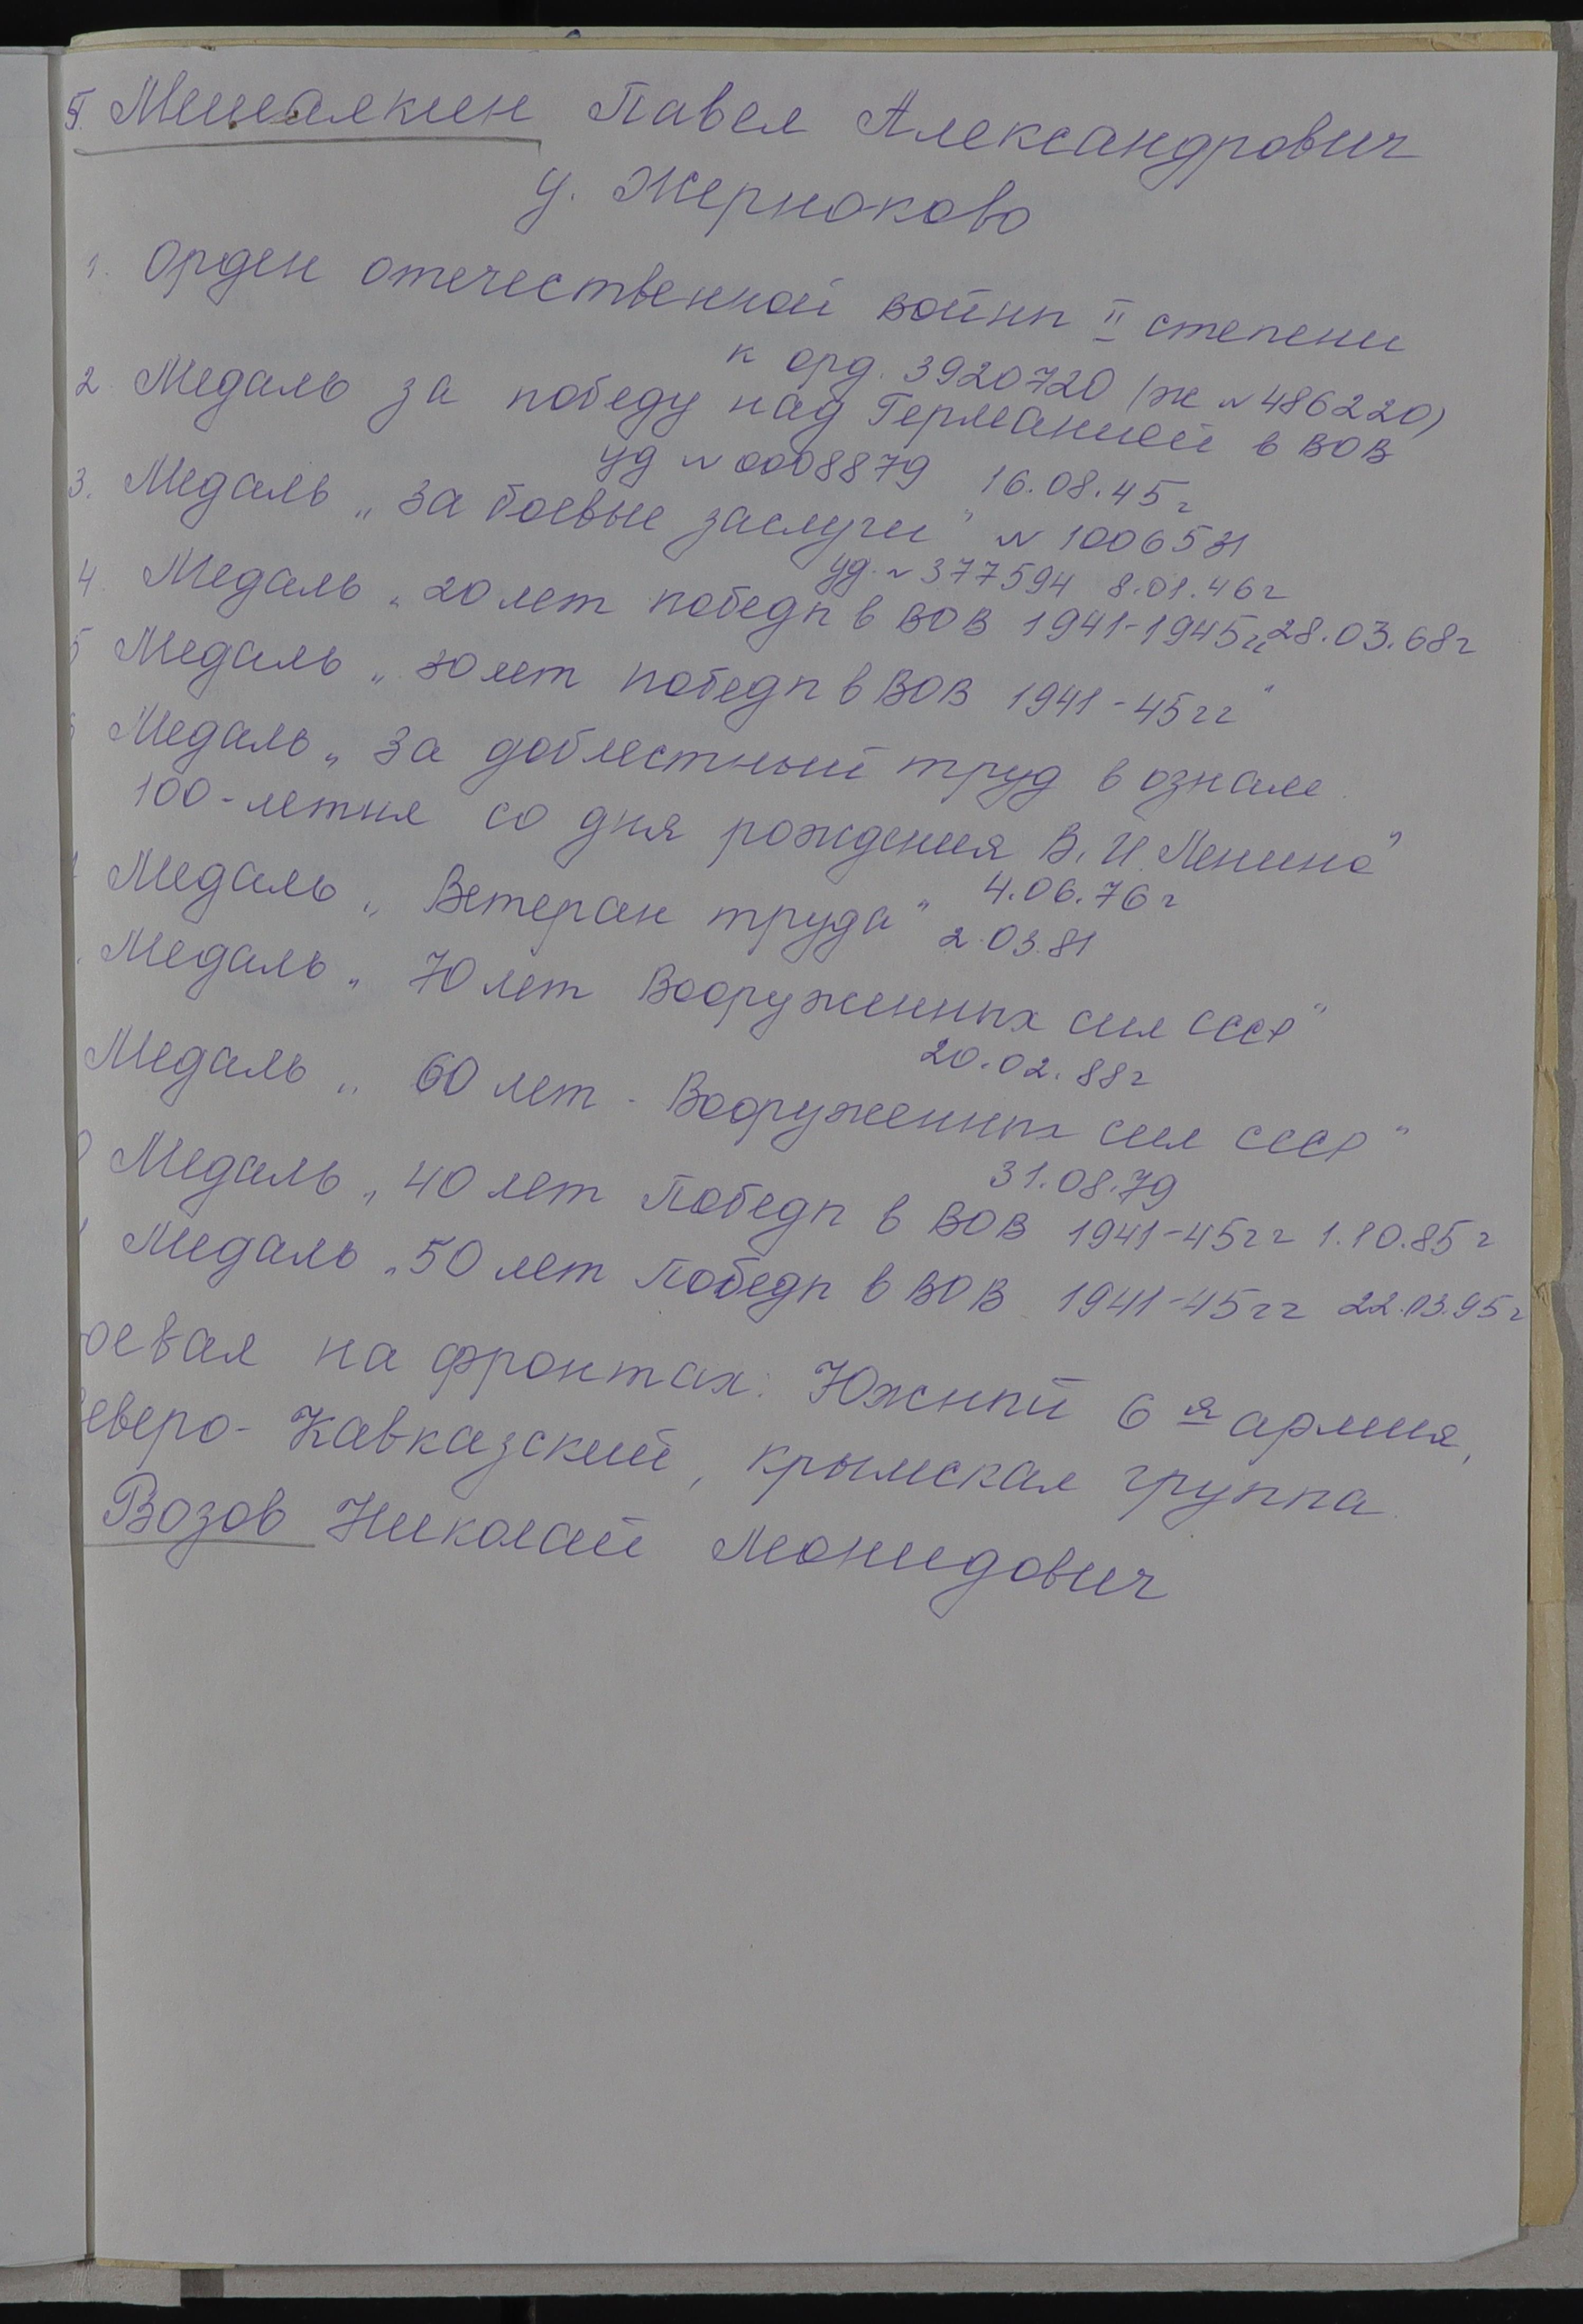 5. Мишалкин Павел Александрович
у. Жерноково
1. Орден отечественной войны II степени
к орд. 3920720 (ж N 486220)
2. Медаль за победу над Германией в ВОВ
уд N 0008879 16.08.45г
3. Медаль „За боевые заслуги" N 1006531
уд. N 377594 8.01.46г
4. Медаль „20 лет победы в ВОВ 1941-1945гг 28.03.68г
5 Медаль „30 лет победы в ВОВ 1941-45гг"
6 Медаль „За доблестный труд в ознам.
100-летия со дня рождения В. И. Ленина"
4.06.76г
Медаль „Ветеран труда" 2.03.81
Медаль „70 лет Вооруженных сил СССР"
20.02.88г
Медаль „60 лет - Вооруженных сил СССР"
31.08.79
0 Медаль „40 лет Победы в ВОВ 1941-45гг 1.10.85г
Медаль „50 лет Победы в ВОВ 1941-45гг 22.03.95г
воевал на фронтах: Южный 6я армия,
Северо-Кавказский, крымская группа.
Возов Николай Леонидович